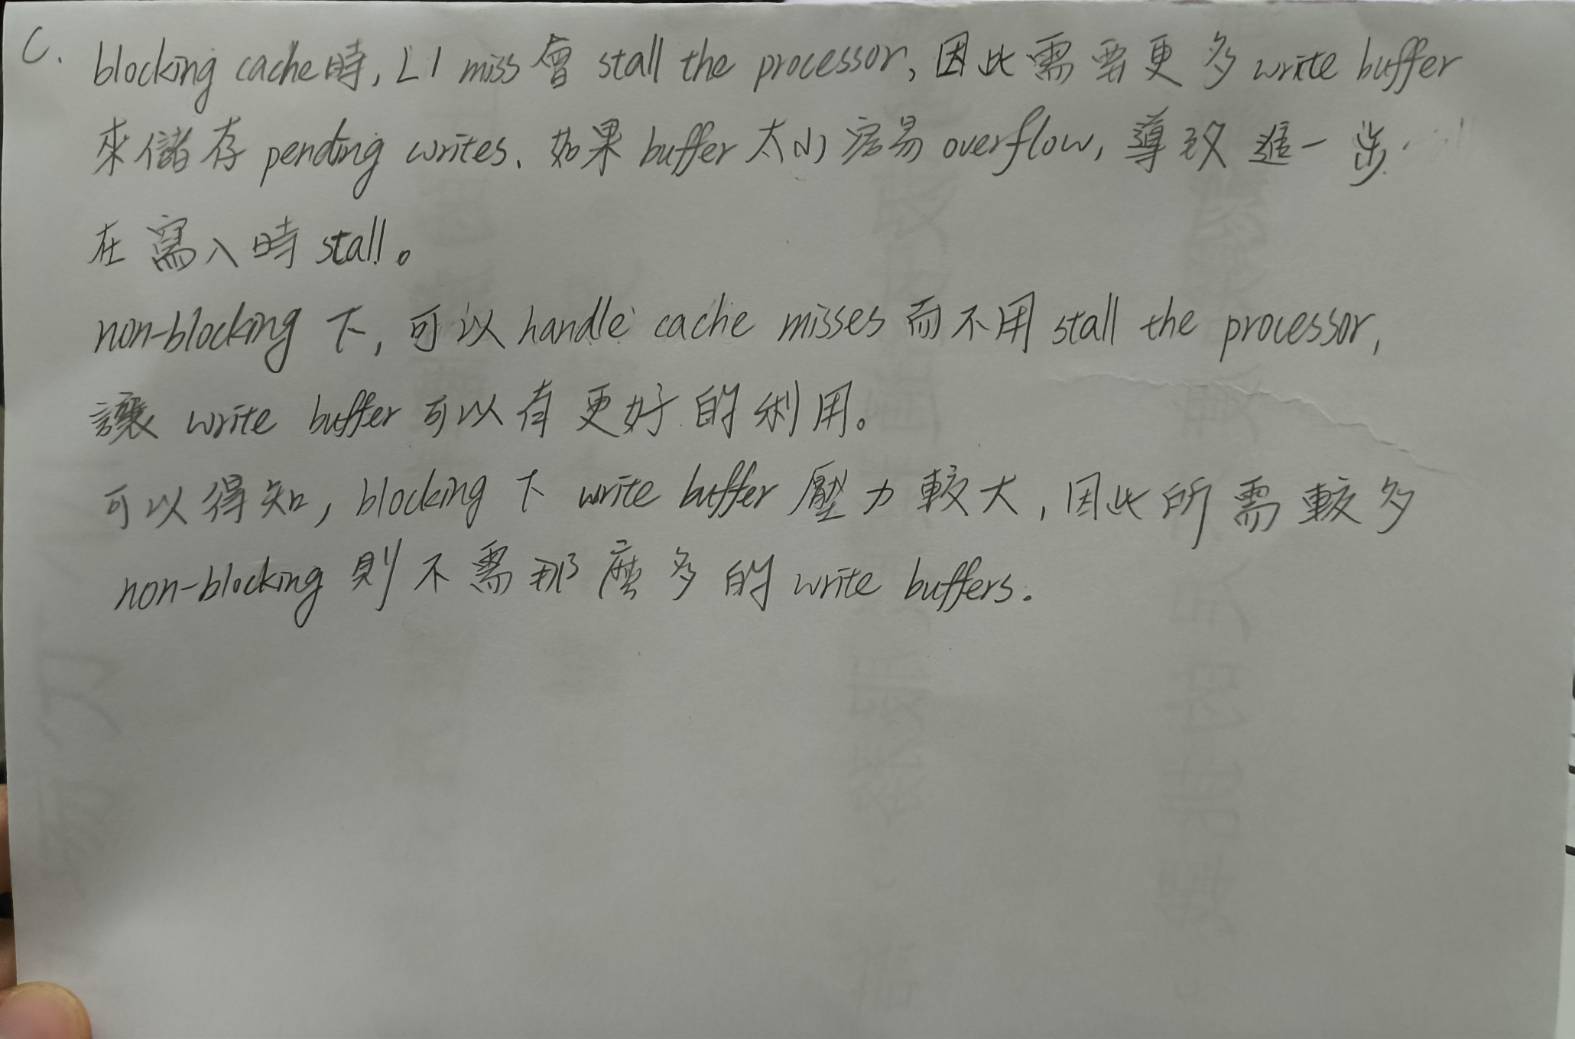 C. blocking cache時, L1 miss 會 stall the processor, 因此需要更多 write buffer
來儲存 pending writes、如果 buffer 太小容易 overflow, 導致進一步
在寫入時 stall。
non-blocking 下, 可以 handle cache misses 而不用 stall the processor,
讓 write buffer 可以有更好的利用。
可以得知, blocking 下 write buffer 壓力較大, 因此所需較多
non-blocking 則不需那麼多的 write buffers.